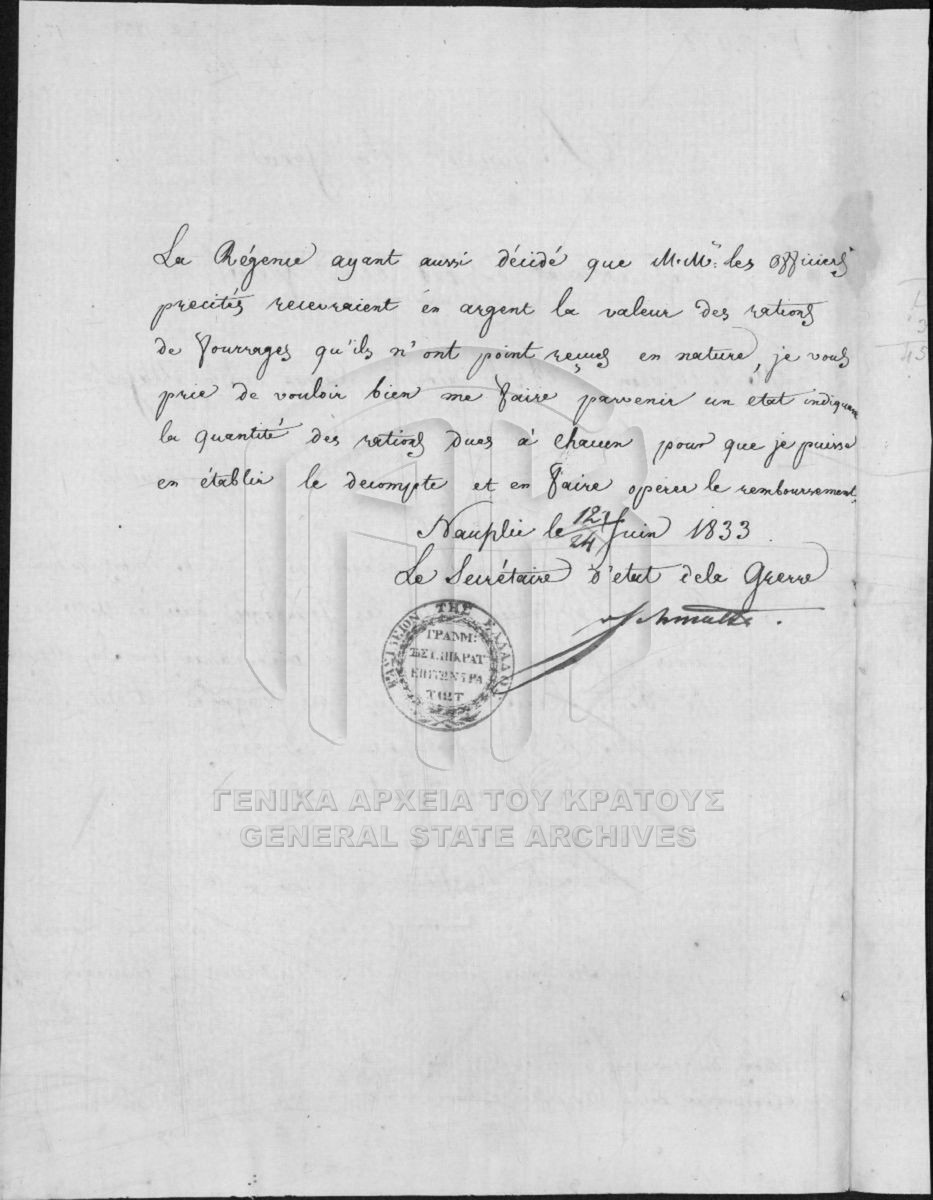 La Régence ayant aussi décidé que M.M.rs les officiers
precités recevraient en argent la valeur des rations
de fourrages qu'ils n'ont point reçues en nature, je vous
prie de vouloir bien me faire parvenir un etat indiquant
la quantité des rations dues à chacun pour que je puisse
en établir le decompte et en faire opérer le remboursement.
Nauplie le 12/24 Juin 1833
Le Secrétaire d'etat dela Guerre
Schmaltz.
ΒΑΣΙΛΕΙΟΝ ΤΗΣ ΕΛΛΑΔΟΣ
ΓΡΑΜΜ:
ΤΗΣ ΕΠΙΚΡΑΤ
ΕΠΙ ΤΩΝ ΣΤΡΑ
ΤΙΩΤ
ΓΕΝΙΚΑ ΑΡΧΕΙΑ ΤΟΥ ΚΡΑΤΟΥΣ
GENERAL STATE ARCHIVES